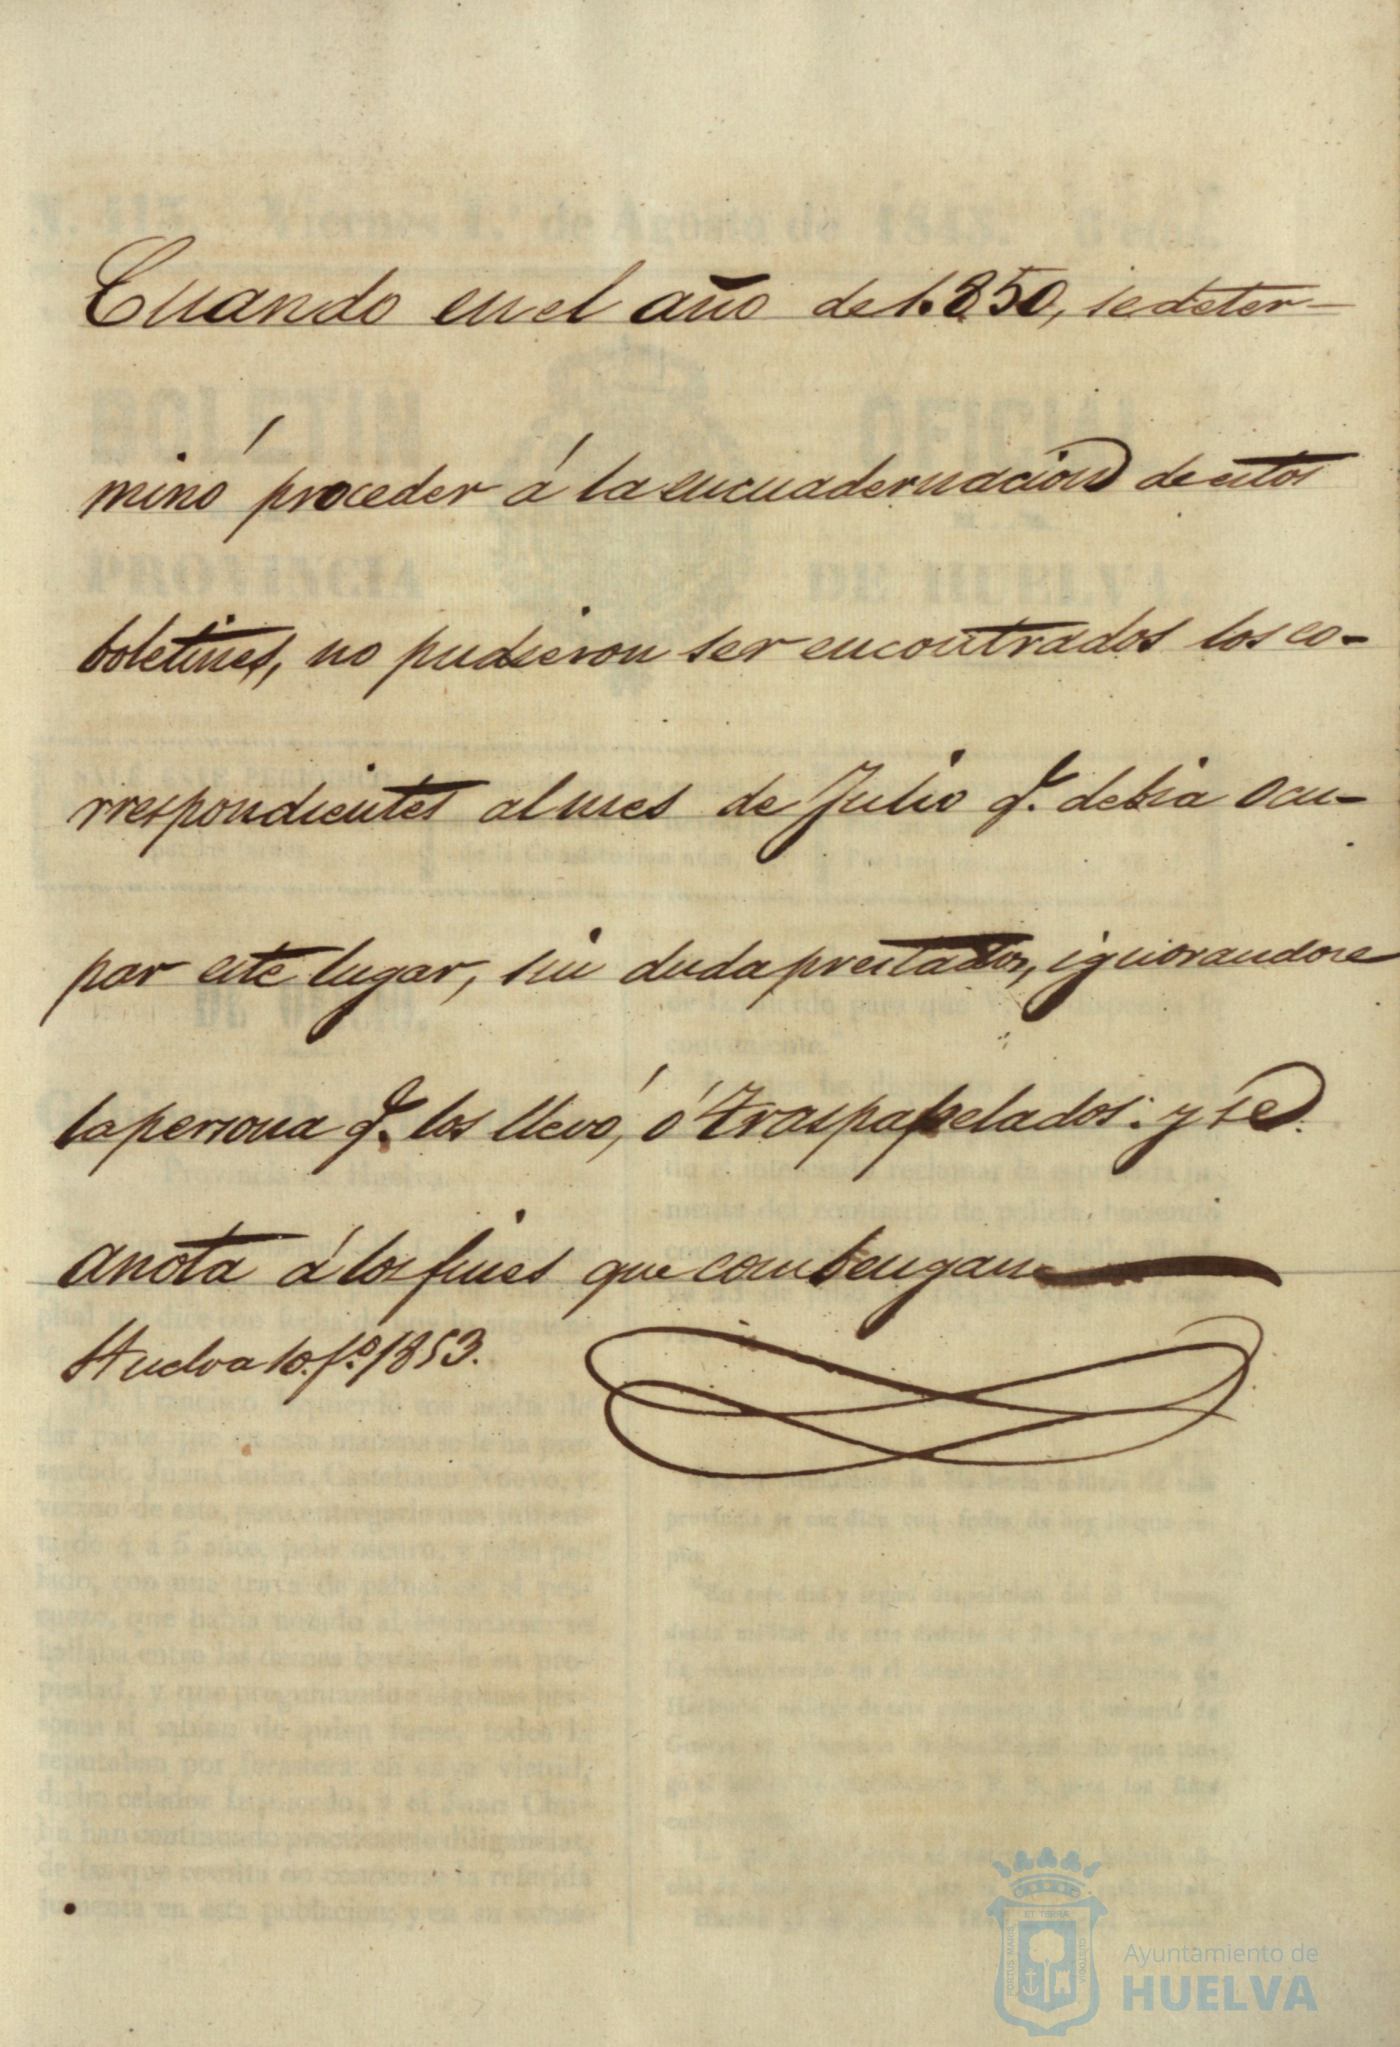 Cuando en el año de 1.850, se deter-
minó proceder á la encuadernacion de estos
boletines, no pudieron ser encontrados los co-
rrespondientes al mes de Julio q.e debia ocu-
par este lugar, sin duda prestados, ignorandose
la persona q.e los llevó, ó traspapelados: y se
anota á los fines que combengan
Huelva 10. f.o/1853.
Ayuntamiento de
HUELVA